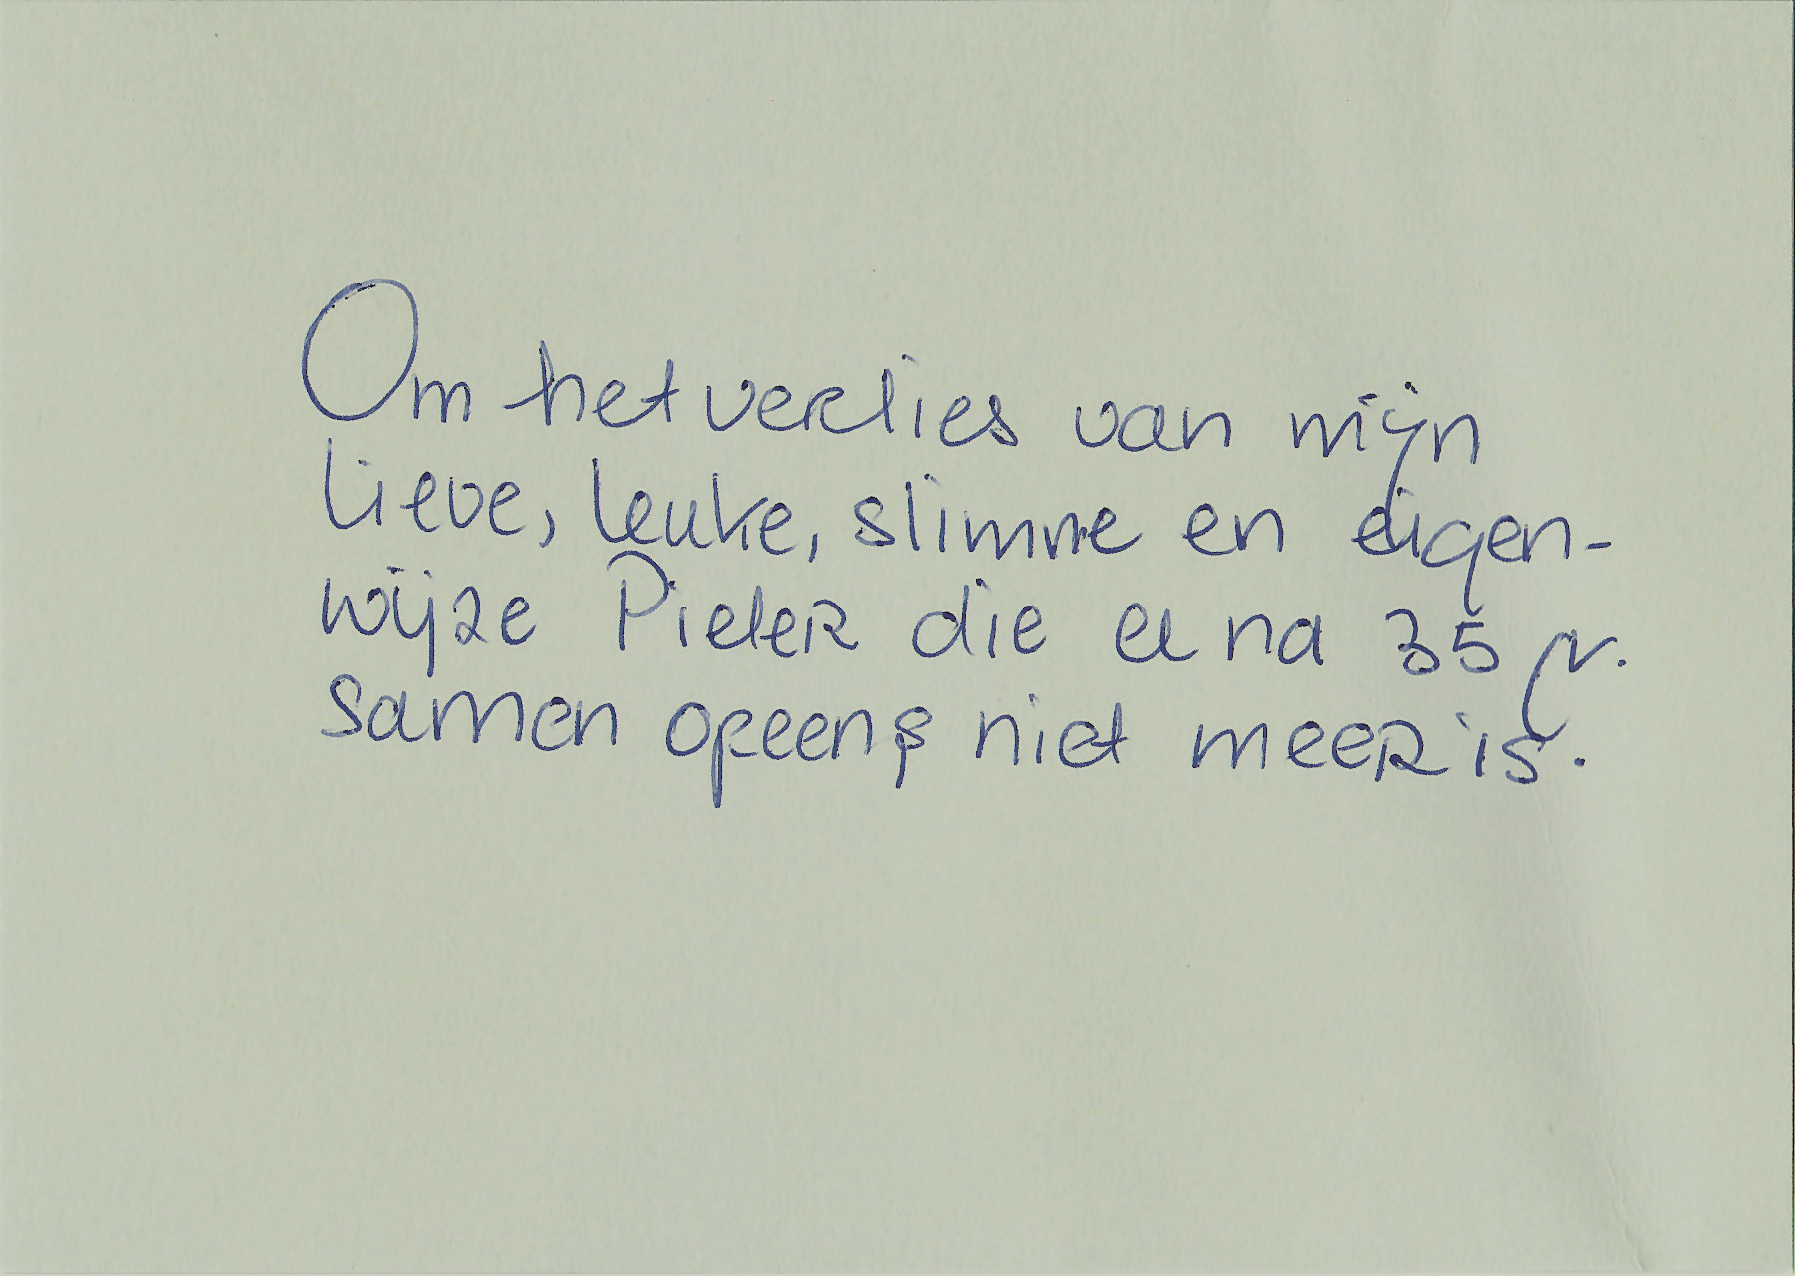 Om het verlies van mijn
lieve, leuke, slimme en eigen-
wijze Pieter die er na 35 jr.
samen opeens niet meer is.